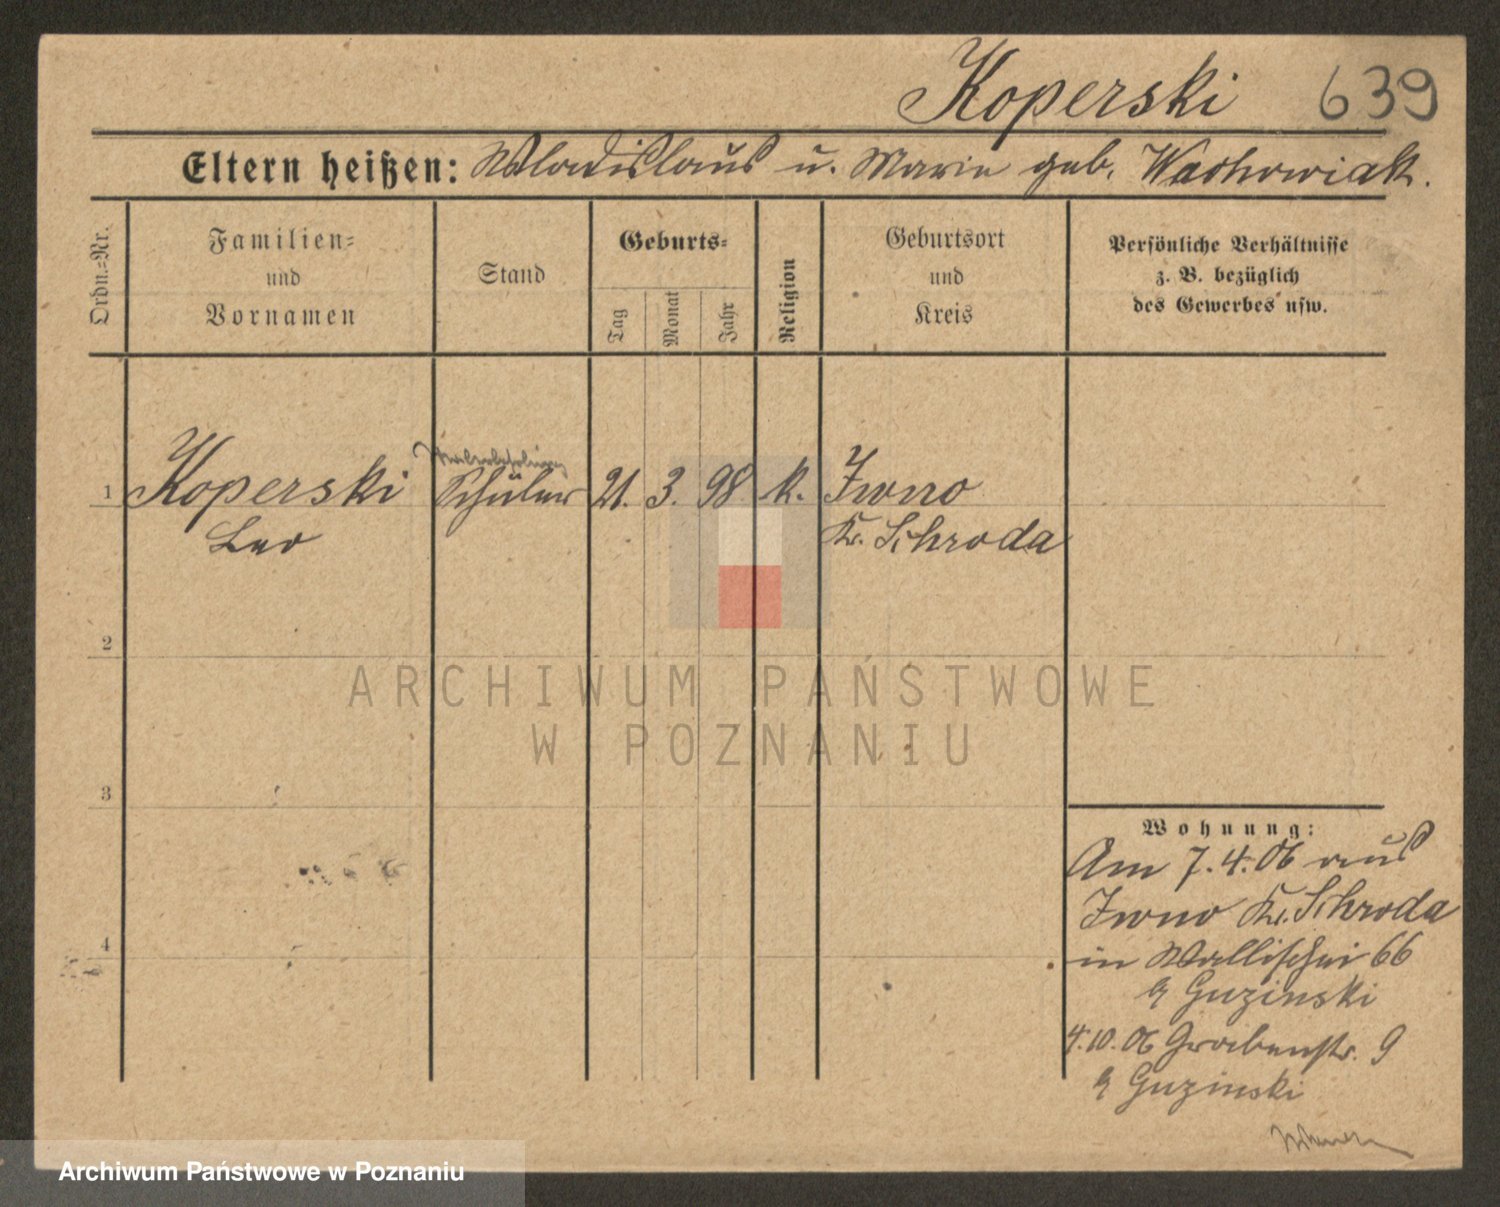 Koperski 639
Eltern heißen: Wladislaus u. Marie geb. Wachowiak.
Ordn.-Nr.
Familien-
und
Vornamen
Stand
Geburts-
Tag
Monat
Jahr
Religion
Geburtsort
und
Kreis
Persönliche Verhältnisse
z. B. bezüglich
des Gewerbes usw.
1 Koperski Schüler 21. 3. 98 k. Iwno
Leo Kr. Schroda
2
3
4
Wohnung:
Am 7.4.06 aus
Iwno Kr. Schroda
in Wallischei 66
b Guzinski
4.10.06 Grabenstr. 9
b Guzinski
ARCHIWUM PAŃSTWOWE
W POZNANIU
Archiwum Państwowe w Poznaniu